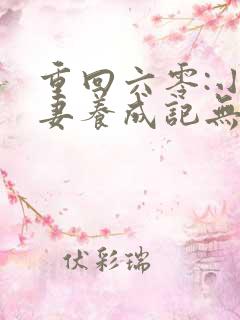 重回六零:小
妻养成記無
伏彩瑞